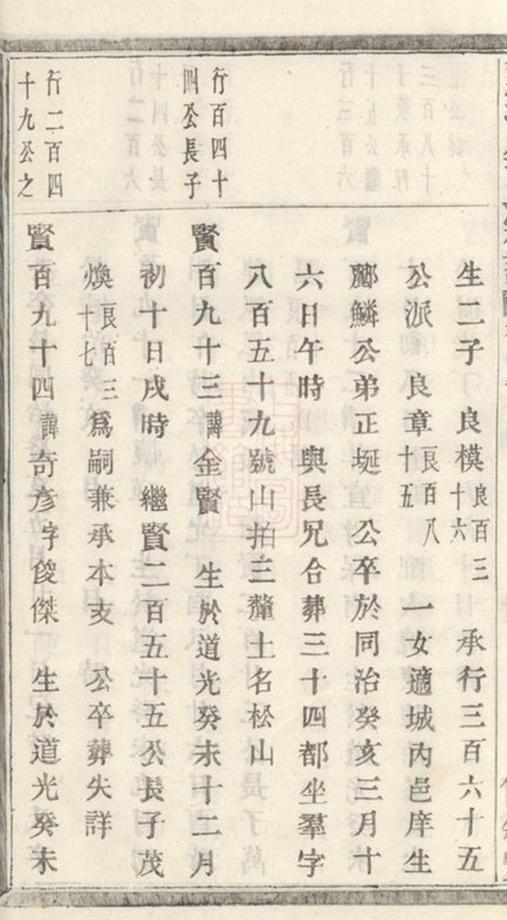 生二子　良模良百三十六　承行三百六十五
公派　良章良百八十五　一女適城內邑庠生
酈鱗公弟正埏　公卒於同治癸亥三月十
六日午時　與長兄合葬三十四都坐羣字
八百五十九號山拍三釐土名松山
行百四十
四公長子
賢百九十三諱金賢　生於道光癸未十二月
初十日戌時　繼賢二百五十五公長子茂
煥良百三十七爲嗣兼承本支　公卒葬失詳
行二百四
十九公之
賢百九十四諱奇彥字俊傑　生於道光癸未